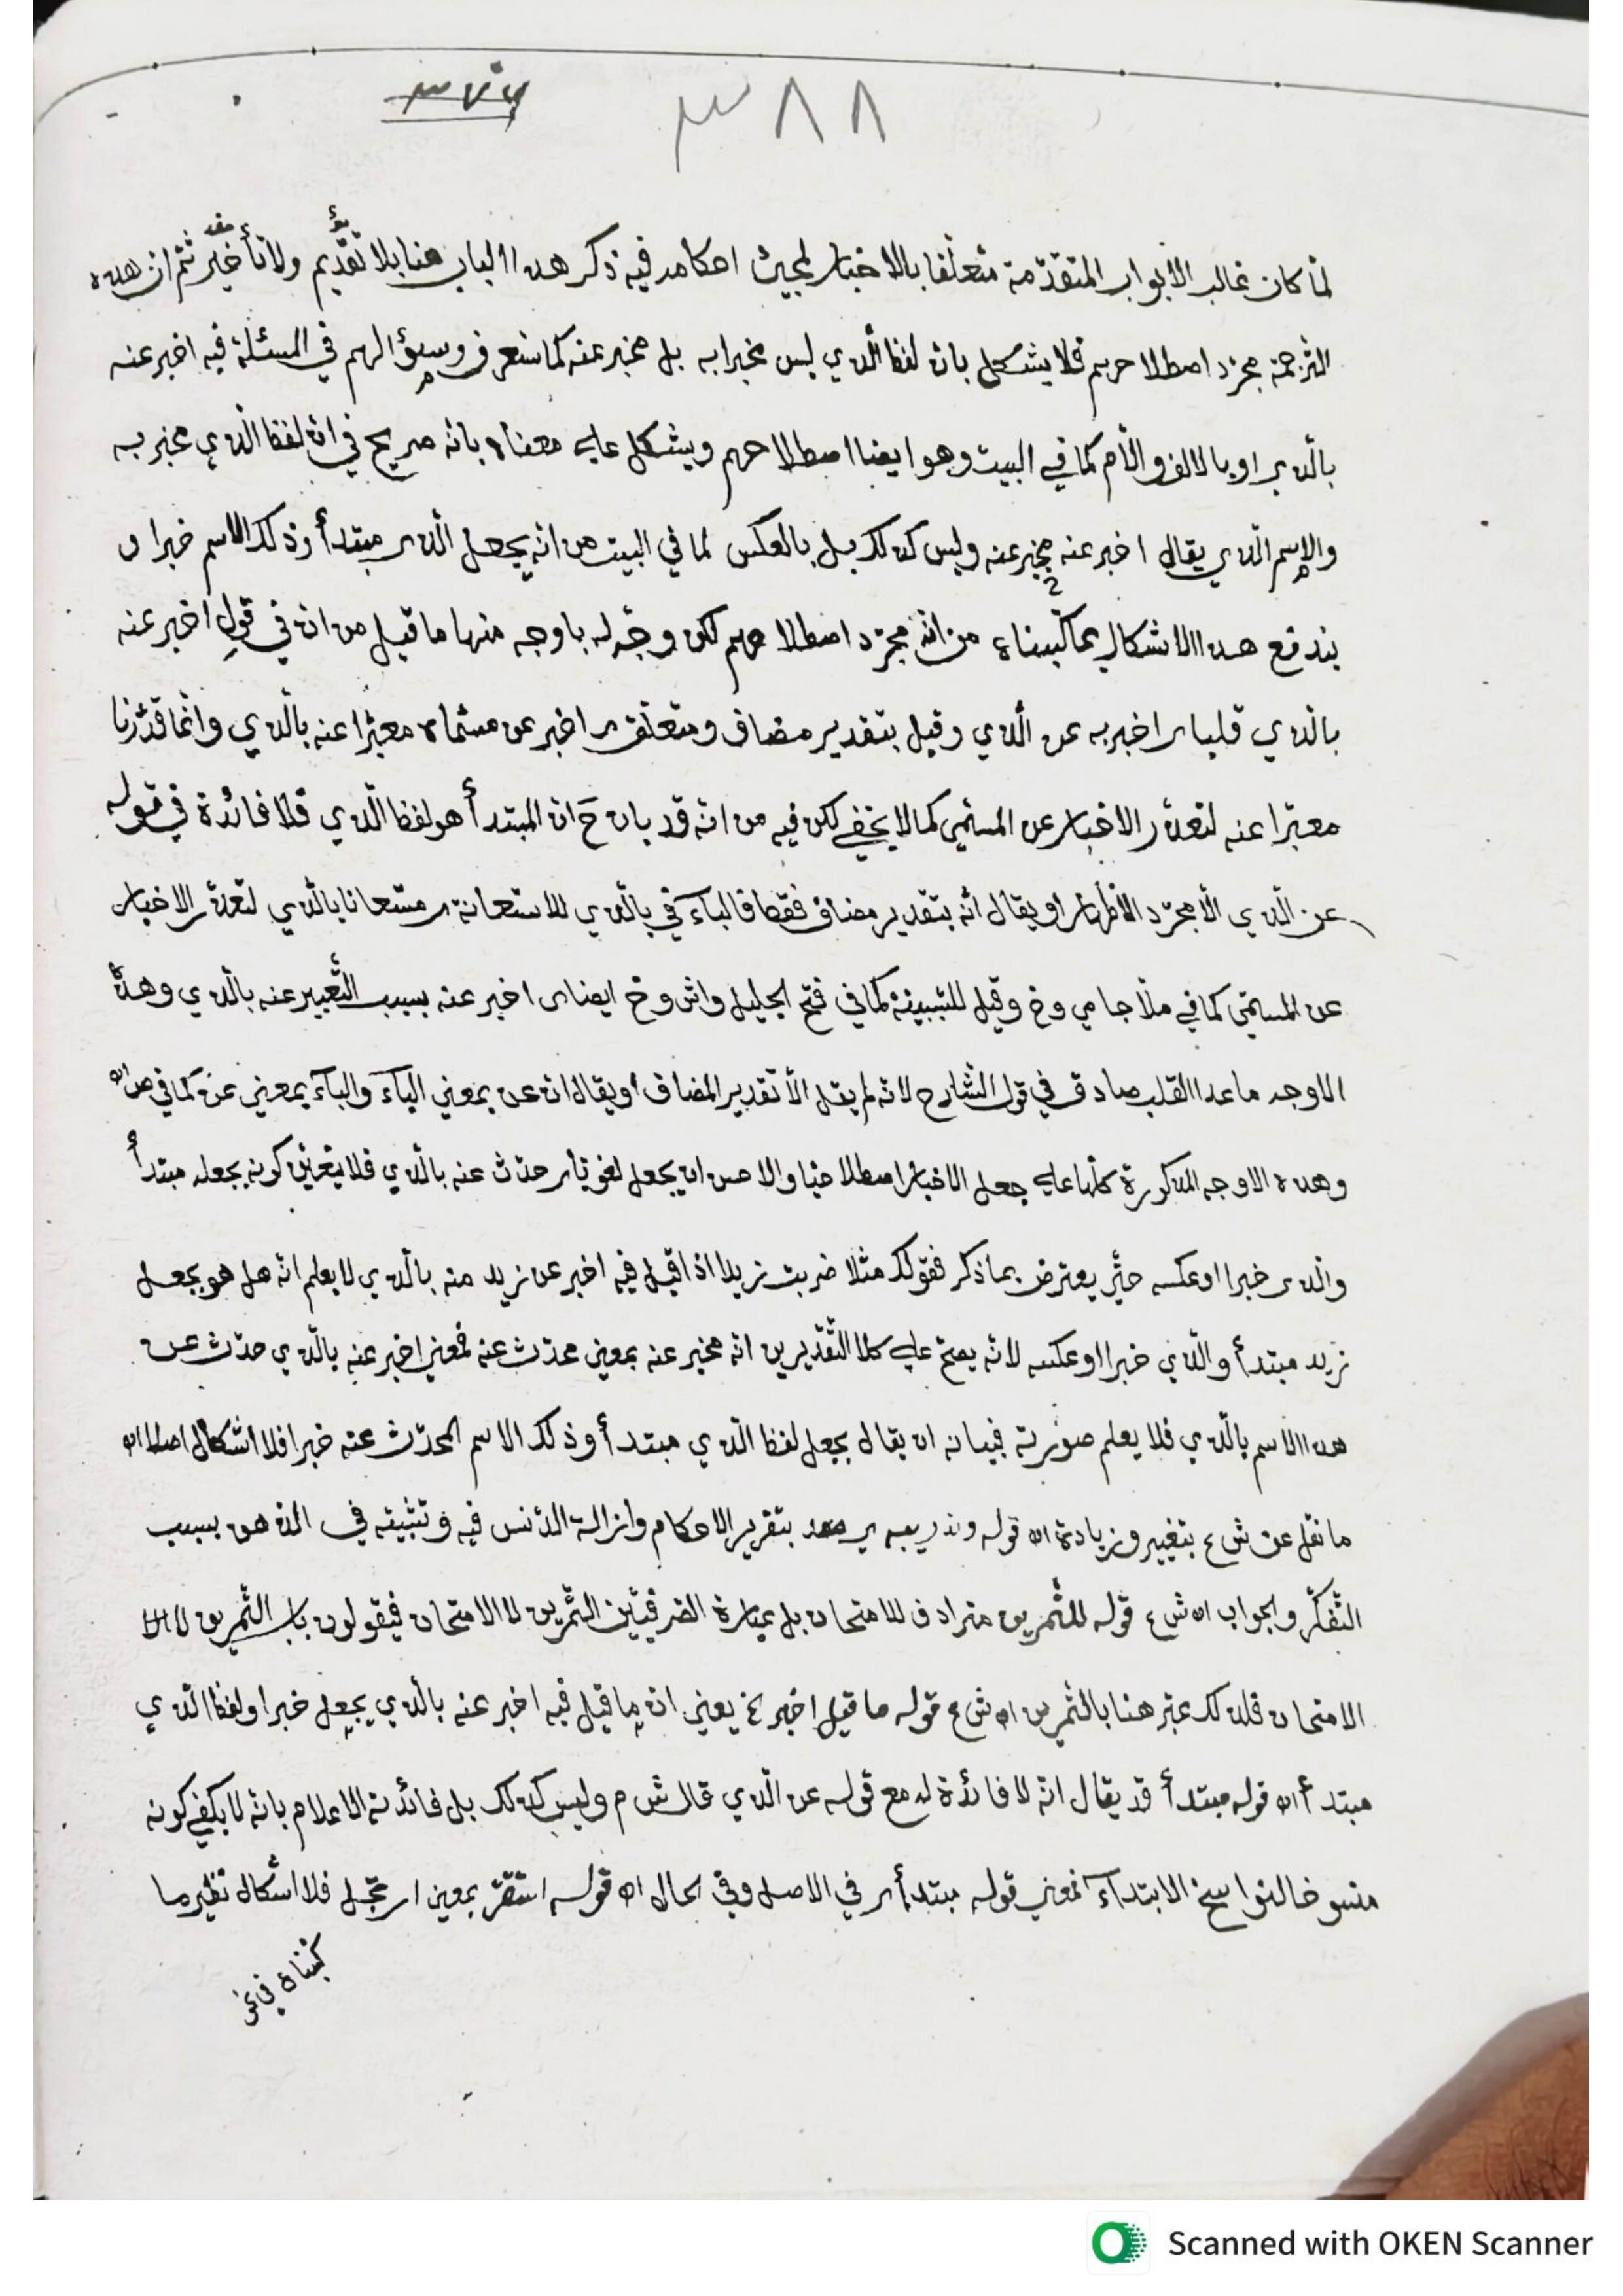 ٣٨٨
٣٧٦
لمّا كان غالب الأبواب المتقدّمة متعلّقا بالاخبار لمجيئ احكامه فيه ذكر هذا الباب هنا بلا تقديم ولا تأخير ثم ان هذه
الترجمة مجرّد اصطلاحهم فلا يشكل بان لفظ الّذي ليس مخبرا به بل مخبر عنه كما ستعرف وسؤالهم في المسئلة فيه اخبر عنه
بالّذي او بالالف واللّام كما في البيت وهو ايضا اصطلاحهم ويشكل على معناه بانّه صريح في ان لفظ الّذي مخبر به
والاسم الّذي يقال اخبر عنه مخبر عنه وليس كذلك بل بالعكس لما في البيت من انّه يجعل الّذي مبتدأ وذلك الاسم خبرا و
يندفع هذا الاشكال بما كتبناه من انّه مجرّد اصطلاحهم لكن وجّه له باوجه منها ما قيل من ان في قولِ اخبر عنه
بالّذي قلبا اي اخبر به عن الّذي وقيل بتقدير مضاف ومتعلّق اي اخبر عن مسمّاه معبّرا عنه بالّذي وانّما قدّرنا
معبّرا عنه لتعذّر الاخبار عن المسمّى كما لا يخفى لكن فيه من انّه قد بان ح ان المبتدأ هو لفظ الّذي فلا فائدة في قوله
عن الّذي الّا مجرّد الاظهار او يقال انّه بتقدير مضاف فقط فالباء في بالّذي للاستعانة اي مستعانا بالّذي لتعذّر الاخبار
عن المسمّى كما في ملّا جامي وخ وقيل للسّببيّة كما في فتح الجليل واش وخ ايضا اى اخبر عنه بسبب التّعبير عنه بالّذي وهذه
الاوجه ما عدا القلب صادق في قول الشّارح لانّه لم يقل الّا تقدير المضاف او يقال ان عن بمعنى الباء والباء بمعنى عن كما في ص اه
وهذه الاوجه المذكورة كلّها على جعل الاخبار اصطلاحيّا والاحسن ان يجعل لغويّا اي حدّث عنه بالّذي فلا يتعيّن كونه يجعله مبتدأ
والّذى خبرا او عكسه حتّى يعترض بما ذكر فقولك مثلا ضربت زيدا اذا قيل فيه اخبر عن زيد منه بالّذي لا يعلم انّه هل هو بجعل
زيد مبتدأ والّذي خبرا او عكسه لانّه يصحّ على كلا التّقديرين انّه مخبر عنه بمعنى محدّث عنه فمعنى اخبر عنه بالّذي حدّث عن
هذا الاسم بالّذي فلا يعلم صورته فبيانه ان يقال بجعل لفظ الّذي مبتدأ وذلك الاسم المحدّث عنه خبرا فلا اشكال اصلا اه
ما نقل عن ش ع بتغيير وزيادة اه قوله وتدريبه بتقرير الاحكام وازالة الدّنس فيه وتثبيته في الذهن بسبب
التّفكّر والجواب اه ش ع قوله للتّمرين مترادف للامتحان بل عبارة الصّرفيّين التّمرين لا الامتحان فيقولون باب التّمرين لا
الامتحان فلذلك عبّر هنا بالتّمرين اه ش ع قوله ما قيل اخبر الخ يعني ان ما قيل فيه اخبر عنه بالّذي يجعل خبرا ولفظ الّذي
مبتدأ اه قوله مبتدأ قد يقال انّه لا فائدة له مع قوله عن الّذي قال ش م وليس كذلك بل فائدته الاعلام بانّه لا يكفي كونه
منسوخا لنواسخ الابتداء فمعنى قوله مبتدأ اي في الاصل وفي الحال اه قوله استقرّ بمعنى فلا اشكال نظير ما
كتبناه في
Scanned with OKEN Scanner